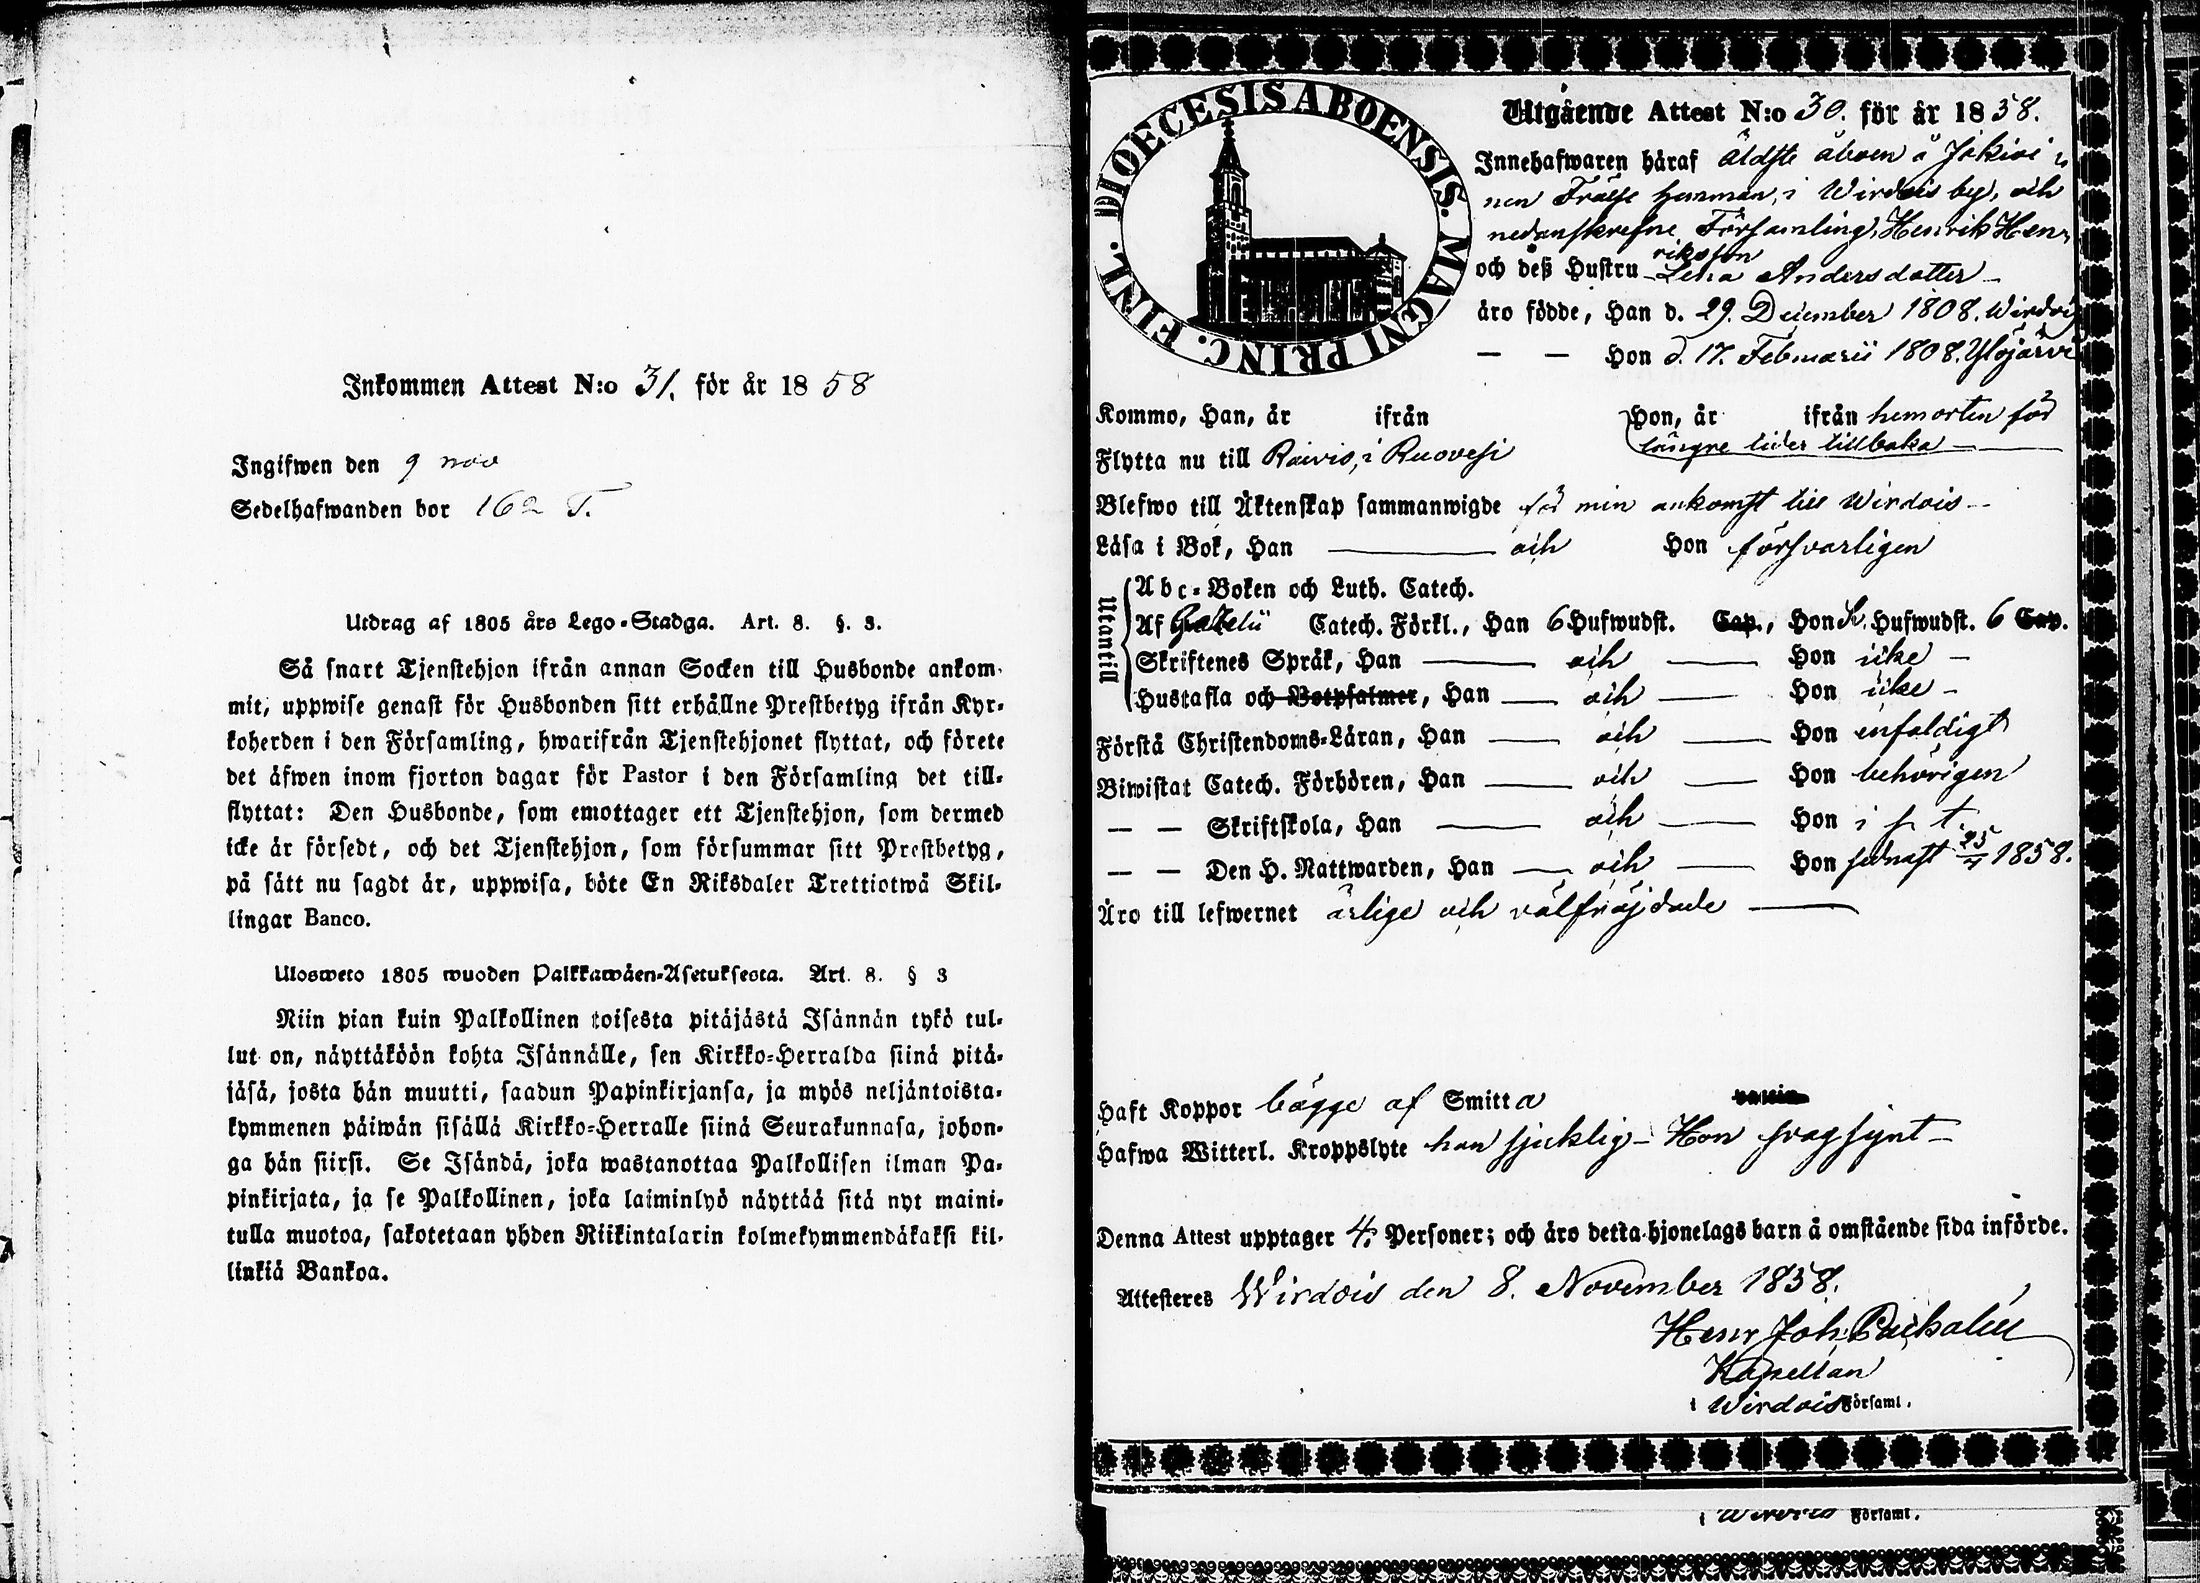 Inkommen Attest N:o 31. för år 1858
Ingifwen den 9 nov
Sedelhafwanden bor 162 T.
Utdrag af 1805 års Lego-Stadga. Art. 8. §. 3.
Så snart Tjenstehjon ifrån annan Socken till Husbonde ankom-
mit, uppwise genast för Husbonden sitt erhållne Prestbetyg ifrån Kyr-
koherden i den Församling, hwarifrån Tjenstehjonet flyttat, och förete
det äfwen inom fjorton dagar för Pastor i den Församling det till-
flyttat: Den Husbonde, som emottager ett Tjenstehjon, som dermed
icke är försedt, och det Tjenstehjon, som försummar sitt Prestbetyg,
på sätt nu sagdt är, uppwisa, böte En Riksdaler Trettiotwå Skil-
lingar Banco.
Ulosweto 1805 wuoden Palkkawäen-Asetuksesta. Art. 8. § 3
Niin pian kuin Palkollinen toisesta pitäjästä Isännän tykö tul-
lut on, näyttäköön kohta Isännälle, sen Kirkko-Herralda siinä pitä-
jäsä, josta hän muutti, saadun Papinkirjansa, ja myös neljäntoista-
kymmenen päiwän sisällä Kirkko-Herralle siinä Seurakunnasa, johon-
ga hän siirsi. Se Isändä, joka wastanottaa Palkollisen ilman Pa-
pinkirjata, ja se Palkollinen, joka laiminlyö näyttää sitä nyt maini-
tulla muotoa, sakotetaan yhden Riikintalarin kolmekymmendäkaksi kil-
linkiä Bankoa.
DIOECESIS ABOENSIS. MAGNI PRINC. FINL.
Utgående Attest N:o 30. för år 1858.
Innehafwaren häraf äldste åboen å Jakivi
nen Frälse hemman, i Wirdois by, och
nedanskrefne Församling, Henrik Hen-
rikson
och deß Hustru Lena Andersdotter
äro födde, Han d. 29. December 1808. Wirdois
— — Hon d. 17. Februarii 1808. Ylöjärvi
Kommo, Han, år ifrån Hon, år ifrån hemorten för
längre tider tillbaka
Flytta nu till Raivio, i Ruovesi
Blefwo till Äktenskap sammanwigde för min ankomst till Wirdois
Läsa i Bok, Han — och Hon försvarligen
Utantill
Abc-Boken och Luth. Catech.
Af Catech. Förkl., Han 6 Hufwudst. Cap., Hon Hufwudst. 6 Cap.
Skriftenes Språk, Han — och — Hon icke —
Hustafla och Botpsalmer, Han — och — Hon icke —
Förstå Christendoms-Läran, Han — och — Hon enfaldigt
Biwistat Catech. Förhören, Han — och — Hon behörigen
— — Skriftskola, Han — och — Hon i s. t.
— — Den H. Nattwarden, Han — och — Hon senast 25/7 1858.
Äro till lefwernet ärlige och välfräjdade —
Haft Koppor bägge af Smitta vaccin
Hafwa Witterl. Kroppslyte han sjuklig — Hon svagsynt —
Denna Attest upptager 4. Personer; och äro detta hjonelags barn å omstående sida införde.
Attesteres Wirdois den 8. November 1858.
Henr Joh.
Kapellan
i Wirdois Församl.
i Wirdois Församl.